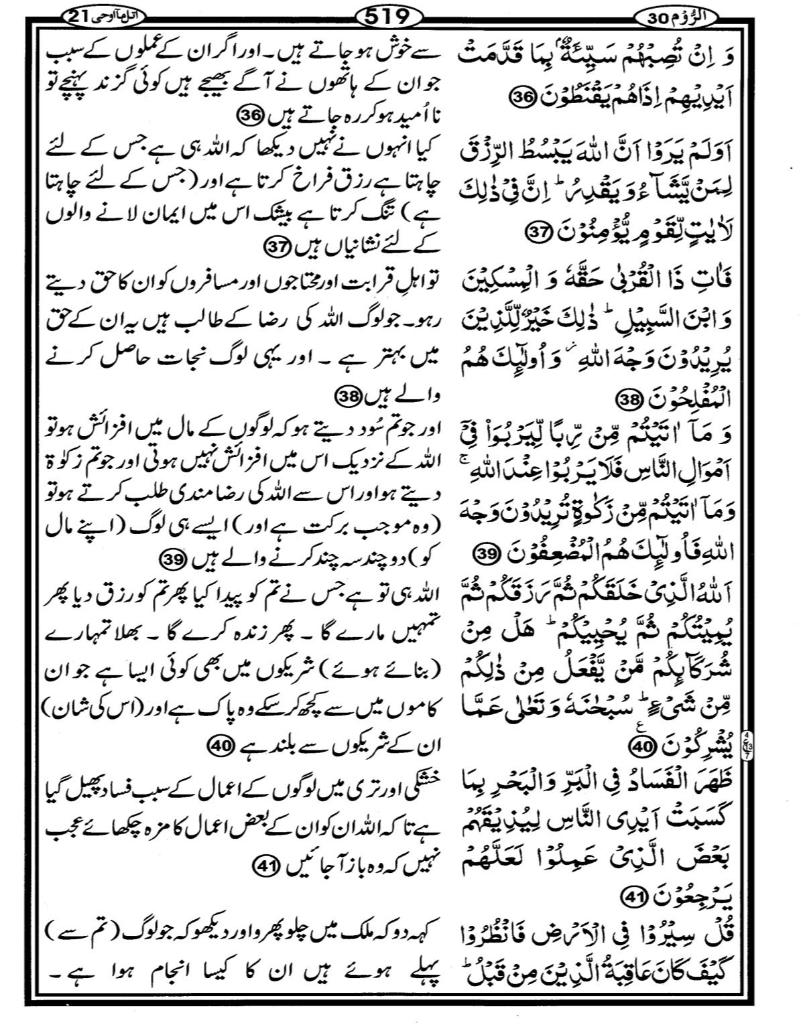 الرُّوْم 30
519
اتل ماۤ اوحی 21
وَ اِنْ تُصِبْهُمْ سَیِّئَةٌۢ بِمَا قَدَّمَتْ
اَیْدِیْهِمْ اِذَاهُمْ یَقْنَطُوْنَ 36
اَوَلَمْ یَرَوْا اَنَّ اللهَ یَبْسُطُ الرِّزْقَ
لِمَنْ یَّشَآءُ وَ یَقْدِرُ ؕ اِنَّ فِیْ ذٰلِكَ
لَاٰیٰتٍ لِّقَوْمٍ یُّؤْمِنُوْنَ 37
فَاٰتِ ذَا الْقُرْبٰی حَقَّهٗ وَ الْمِسْكِیْنَ
وَ ابْنَ السَّبِیْلِ ؕ ذٰلِكَ خَیْرٌ لِّلَّذِیْنَ
یُرِیْدُوْنَ وَجْهَ اللهِ ۫ وَ اُولٰٓئِكَ هُمُ
الْمُفْلِحُوْنَ 38
وَ مَاۤ اٰتَیْتُمْ مِّنْ رِّبًا لِّیَرْبُوَا۠ فِیْۤ
اَمْوَالِ النَّاسِ فَلَا یَرْبُوْا عِنْدَ اللهِ ۚ
وَمَاۤ اٰتَیْتُمْ مِّنْ زَكٰوةٍ تُرِیْدُوْنَ وَجْهَ
اللهِ فَاُولٰٓئِكَ هُمُ الْمُضْعِفُوْنَ 39
اَللهُ الَّذِیْ خَلَقَكُمْ ثُمَّ رَزَقَكُمْ ثُمَّ
یُمِیْتُكُمْ ثُمَّ یُحْیِیْكُمْ ؕ هَلْ مِنْ
شُرَكَآىِٕكُمْ مَّنْ یَّفْعَلُ مِنْ ذٰلِكُمْ
مِّنْ شَیْءٍ ؕ سُبْحٰنَهٗ وَ تَعٰلٰی عَمَّا
یُشْرِكُوْنَ 40
ظَهَرَ الْفَسَادُ فِی الْبَرِّ وَالْبَحْرِ بِمَا
كَسَبَتْ اَیْدِی النَّاسِ لِیُذِیْقَهُمْ
بَعْضَ الَّذِیْ عَمِلُوْا لَعَلَّهُمْ
یَرْجِعُوْنَ 41
قُلْ سِیْرُوْا فِی الْاَرْضِ فَانْظُرُوْا
كَیْفَ كَانَ عَاقِبَةُ الَّذِیْنَ مِنْ قَبْلُ ؕ
سے خوش ہو جاتے ہیں۔ اور اگر ان کے عملوں کے سبب
جو ان کے ہاتھوں نے آگے بھیجے ہیں کوئی گزند پہنچے تو
نا اُمید ہو کر رہ جاتے ہیں 36
کیا انہوں نے نہیں دیکھا کہ اللہ ہی ہے جس کے لئے
چاہتا ہے رزق فراخ کرتا ہے اور (جس کے لئے چاہتا
ہے) تنگ کرتا ہے بیشک اس میں ایمان لانے والوں
کے لئے نشانیاں ہیں 37
تو اہلِ قرابت اور محتاجوں اور مسافروں کو ان کا حق دیتے
رہو۔ جو لوگ اللہ کی رضا کے طالب ہیں یہ ان کے حق
میں بہتر ہے ۔ اور یہی لوگ نجات حاصل کرنے
والے ہیں 38
اور جو تم سُود دیتے ہو کہ لوگوں کے مال میں افزائش ہو تو
اللہ کے نزدیک اس میں افزائش نہیں ہوتی اور جو تم زکوٰۃ
دیتے ہو اور اس سے اللہ کی رضا مندی طلب کرتے ہو تو
(وہ موجب برکت ہے اور) ایسے ہی لوگ (اپنے مال
کو) دو چند سہ چند کرنے والے ہیں 39
اللہ ہی تو ہے جس نے تم کو پیدا کیا پھر تم کو رزق دیا پھر
تمہیں مارے گا ۔ پھر زندہ کرے گا ۔ بھلا تمہارے
(بنائے ہوئے) شریکوں میں بھی کوئی ایسا ہے جو ان
کاموں میں سے کچھ کر سکے وہ پاک ہے اور (اس کی شان)
ان کے شریکوں سے بلند ہے 40
خشکی اور تری میں لوگوں کے اعمال کے سبب فساد پھیل گیا
ہے تاکہ اللہ ان کو ان کے بعض اعمال کا مزہ چکھائے عجب
نہیں کہ وہ باز آ جائیں 41
کہہ دو کہ ملک میں چلو پھرو اور دیکھو کہ جو لوگ (تم سے)
پہلے ہوئے ہیں ان کا کیسا انجام ہوا ہے ۔